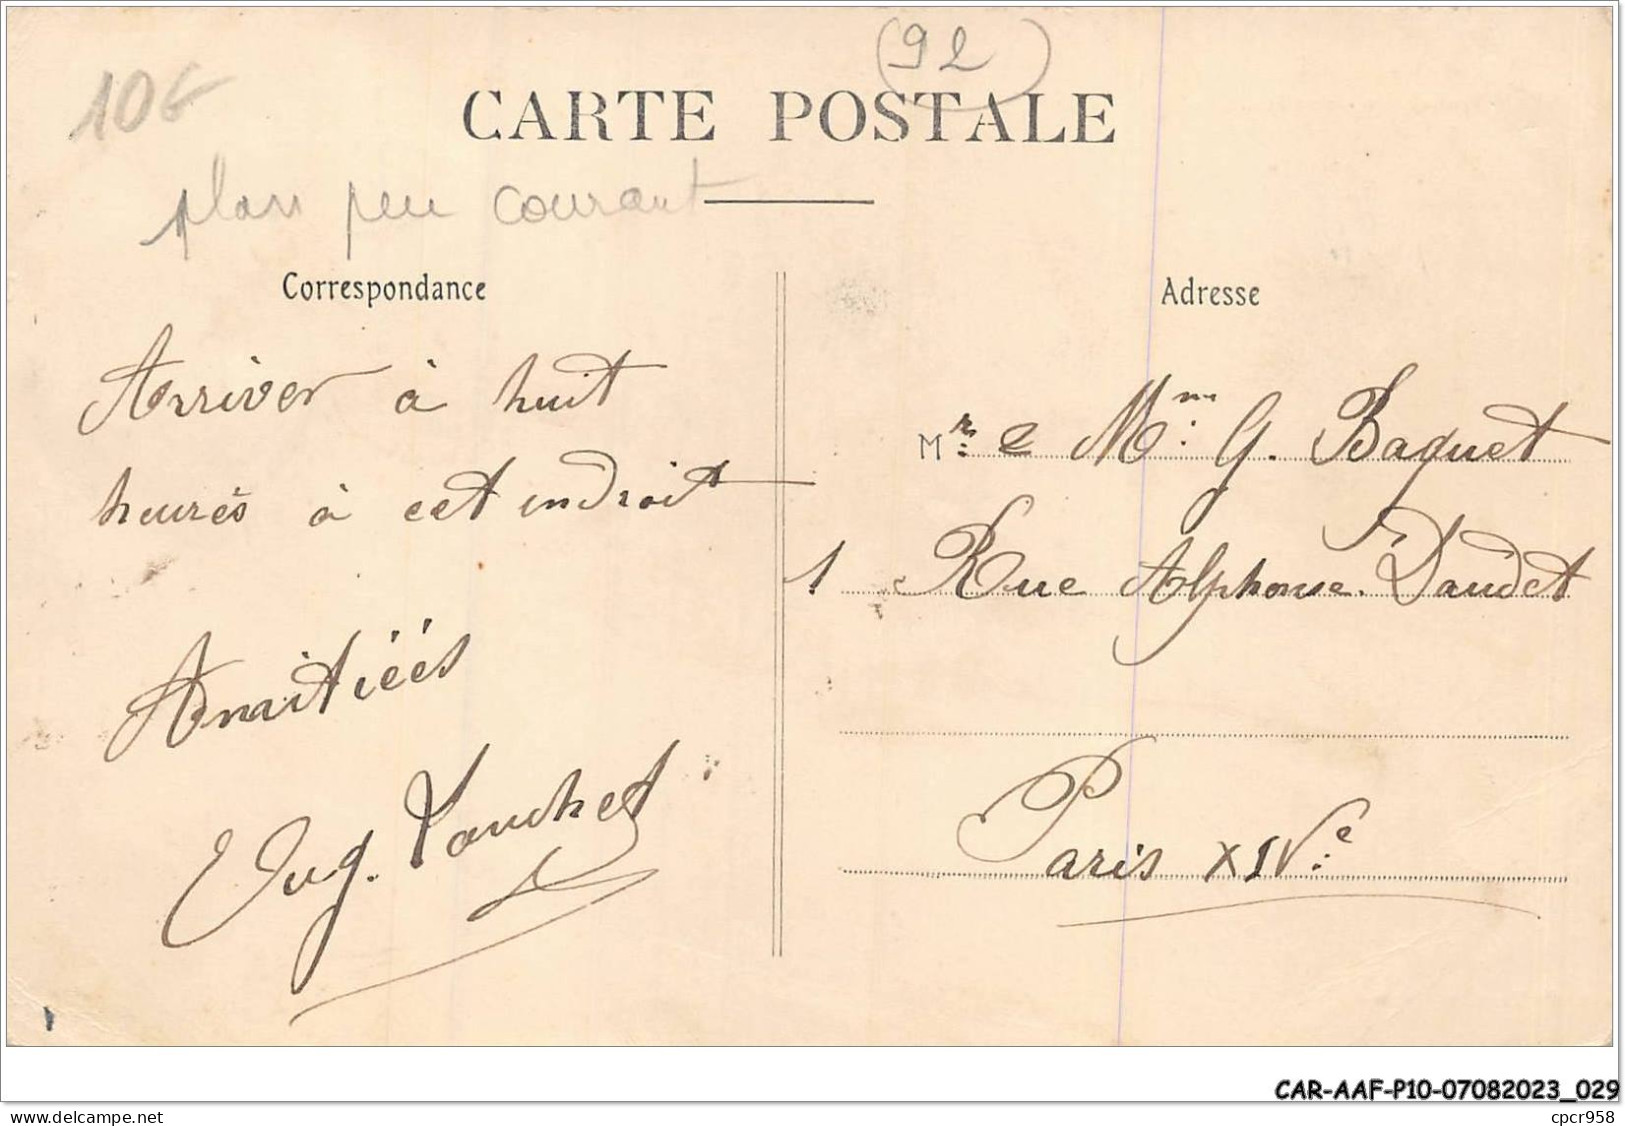 (92)
10€
CARTE POSTALE
plan peu courant
Correspondance
Arriver à huit
heurès à cet endroit
Amitiéés
Eug. Vauchet
Adresse
Mr. e Mme. G. Baquet
1 Rue Alphonse. Daudet
Paris XIVe.
CAR-AAF-P10-07082023_029
www.delcampe.net
cpcr958